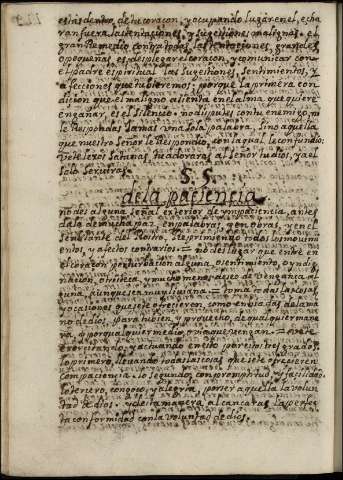 estas dentro, de tu coraçon, y ocupando lugar en el, echa
ran fuera, las tentaciones, y sugestiones malignas. el
gran Remedio contra todas las tentaciones, grandes
o pequeñas es desplegar el coraçon, y comunicar con
el padre espiritual las sugestiones, sentimientos, y
afecciones que tuvieremos. porque la primera con
dicion que el maligno assienta en el alma que quiere
enganar, es el silencio. no disputes con tu enemigo, ni
le Respondas jamas una sola palabra, sino aquella
que nuestro Señor le Respondio, con la qual le confundio:
Vete lexos Satanas, tu adoraras al Señor tu dios, y a el
solo Serviras.
S. S.
de la paciencia
no des alguna señal exterior de ympaciencia, antes
de la de mucha paz, en palabras, y en obras, y en el
semblante del Rostro, Reprimiendo todos los movimi
entos, y afectos contrarios. = no des lugar que entre en
el coraçon perturbacion alguna, o sentimiento, o yndig
nacion, o tristeza, y mucho menos deseo de vengança al
guna, aunque sea muy liviana. = toma todas las cosas, y
ocasiones que se te ofrecieren, como enviadas de la ma
no de dios, para tu bien, y provecho, de qualquier mane
ra, o por qualquier medio, o via que vengan. = Aste
exercitando, y actuando en esto por estos tres grados
lo primero, llevando todas las cosas que se te ofrecieren
con paciencia. lo segundo, con promptitud y facilidad,
lo tercero, con gozo y alegria, por ser aquella la volun
tad de dios. y desta manera alcançaras la perfec
ta conformidad con la voluntad de dios.